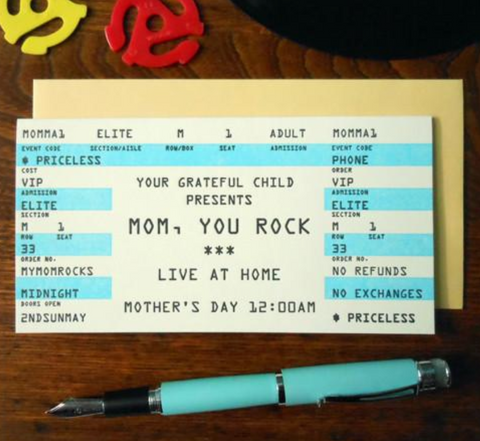 MOMMA1 ELITE M 1 ADULT MOMMA1
EVENT CODE SECTION/AISLE ROW/BOX SEAT ADMISSION EVENT CODE
$ PRICELESS
COST
VIP
ADMISSION
ELITE
SECTION
M 1
ROW SEAT
33
ORDER NO.
MYMOMROCKS
MIDNIGHT
DOORS OPEN
2NDSUNMAY
YOUR GRATEFUL CHILD
PRESENTS
MOM, YOU ROCK
***
LIVE AT HOME
MOTHER'S DAY 12:00AM
PHONE
ORDER
VIP
ADMISSION
ELITE
SECTION
M 1
ROW SEAT
33
ORDER NO.
NO REFUNDS
NO EXCHANGES
$ PRICELESS